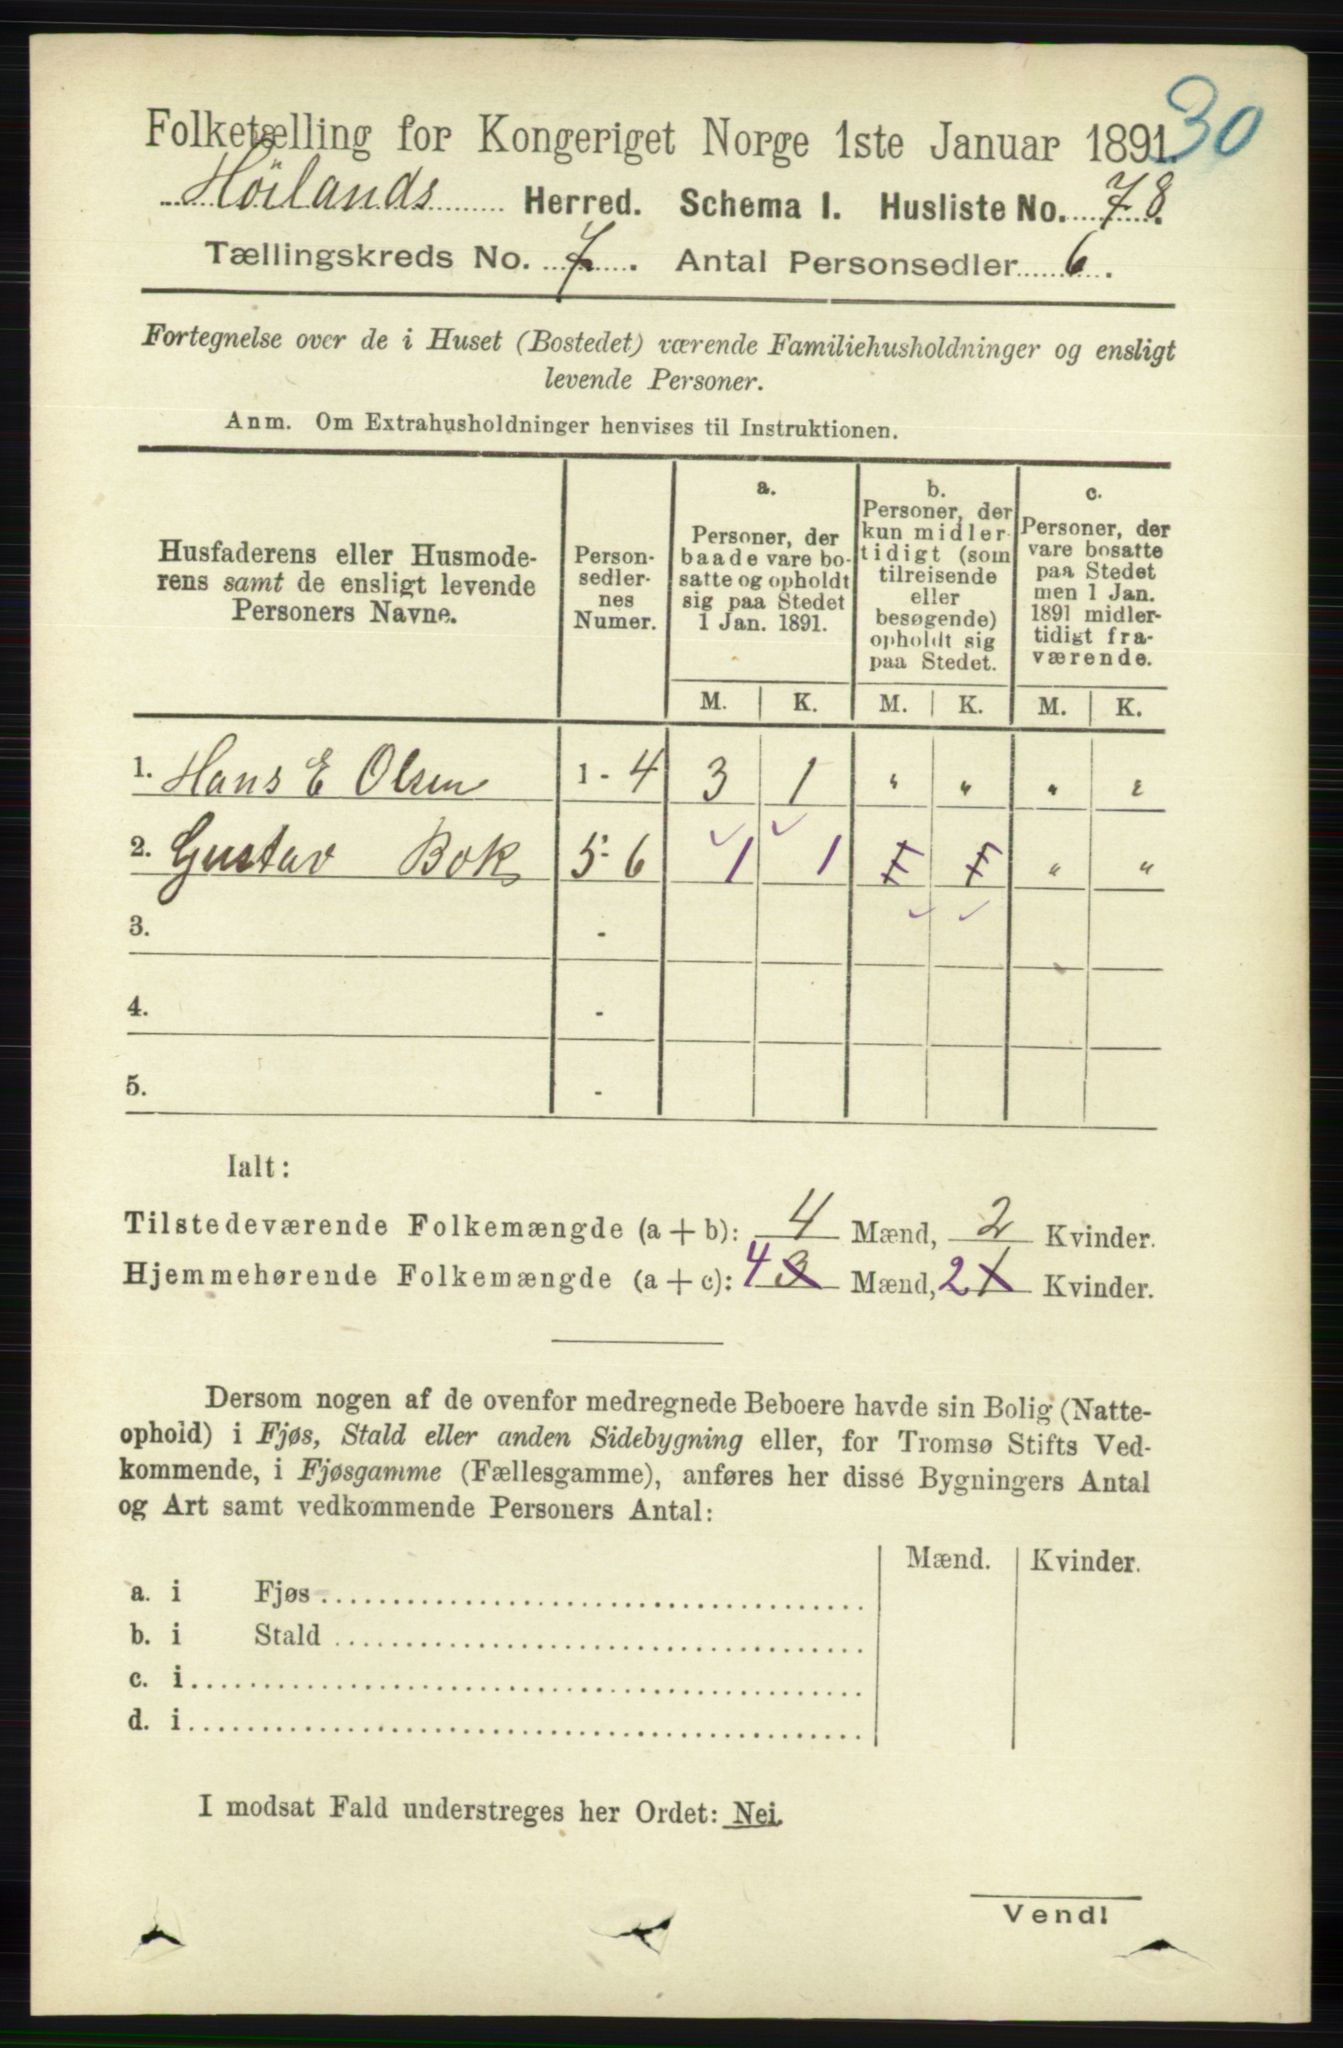 30
Folketælling for Kongeriget Norge 1ste Januar 1891.
Höilands Herred. Schema I. Husliste No. 78.
Tællingskreds No. 7. Antal Personsedler 6.
Fortegnelse over de i Huset (Bostedet) værende Familiehusholdninger og ensligt
levende Personer.
Anm. Om Extrahusholdninger henvises til Instruktionen.
Husfaderens eller Husmode-
rens samt de ensligt levende
Personers Navne.
Person-
sedler-
nes
Numer.
a.
Personer, der
baade vare bo-
satte og opholdt
sig paa Stedet
1 Jan. 1891.
b.
Personer, der
kun midler-
tidigt (som
tilreisende
eller
besøgende)
opholdt sig
paa Stedet.
c.
Personer, der
vare bosatte
paa Stedet
men 1 Jan.
1891 midler-
tidigt fra-
værende.
M. K. M. K. M. K.
1. Hans E Olsen 1 - 4 3 1 " " " "
2. Gustav Bok 5 - 6 1 1 1 1 " "
3. -
4. -
5. -
Ialt:
Tilstedeværende Folkemængde (a + b): 4 Mænd, 2 Kvinder.
Hjemmehørende Folkemængde (a + c): 4 3 Mænd, 2 1 Kvinder.
Dersom nogen af de ovenfor medregnede Beboere havde sin Bolig (Natte-
ophold) i Fjøs, Stald eller anden Sidebygning eller, for Tromsø Stifts Ved-
kommende, i Fjøsgamme (Fællesgamme), anføres her disse Bygningers Antal
og Art samt vedkommende Personers Antal:
Mænd. Kvinder.
a. i Fjøs
b. i Stald
c. i
d. i
I modsat Fald understreges her Ordet: Nei.
Vend!